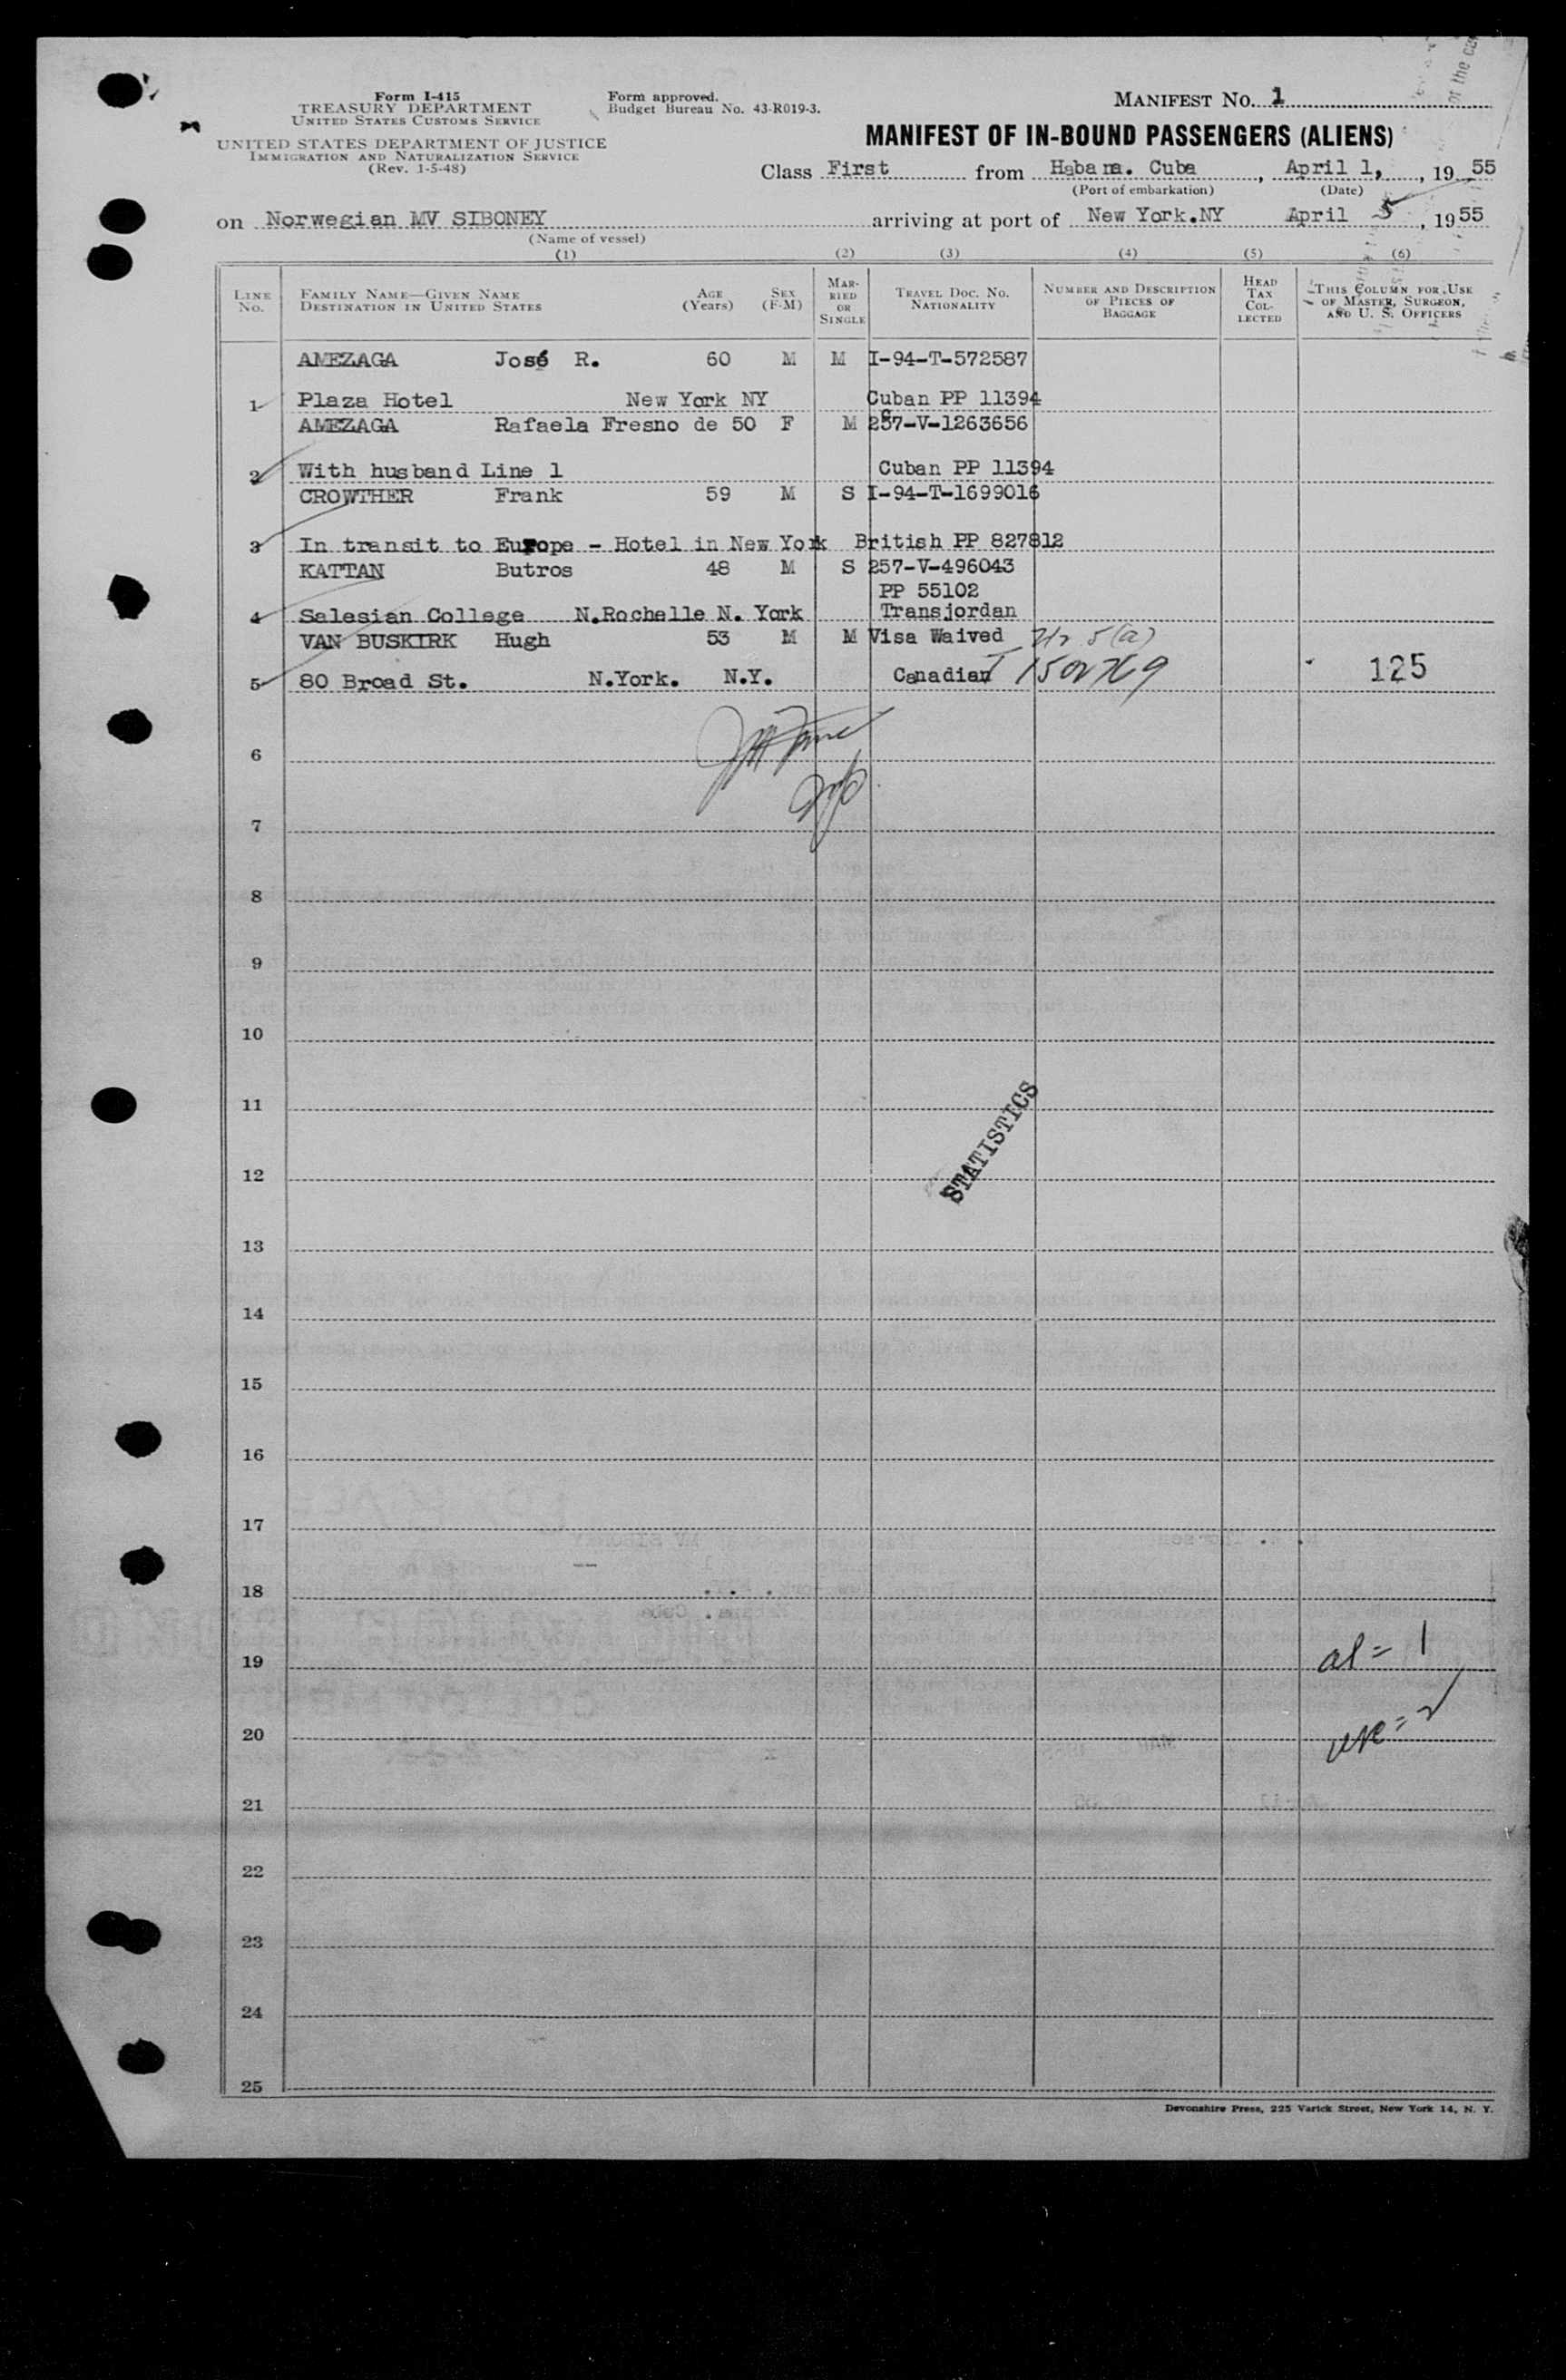 Form I-415
TREASURY DEPARTMENT
UNITED STATES CUSTOMS SERVICE
UNITED STATES DEPARTMENT OF JUSTICE
IMMIGRATION AND NATURALIZATION SERVICE
(Rev. 1-5-48)
Form approved.
Budget Bureau No. 43-R019-3.
MANIFEST NO. 1
MANIFEST OF IN-BOUND PASSENGERS (ALIENS)
Class First from Habana. Cuba, April 1, 1955
(Port of embarkation) (Date)
on Norwegian MV SIBONEY arriving at port of New York.NY April 5, 1955
(Name of vessel)
(1) (2) (3) (4) (5) (6)
LINE NO. FAMILY NAME—GIVEN NAME DESTINATION IN UNITED STATES AGE (Years) SEX (F-M) MARRIED OR SINGLE TRAVEL DOC. NO. NATIONALITY NUMBER AND DESCRIPTION OF PIECES OF BAGGAGE HEAD TAX COLLECTED THIS COLUMN FOR USE OF MASTER, SURGEON, AND U. S. OFFICERS
AMEZAGA José R. 60 M M I-94-T-572587
1 Plaza Hotel New York NY Cuban PP 11394
AMEZAGA Rafaela Fresno de 50 F M 257-V-1263656
2 With husband Line 1 Cuban PP 11394
CROWTHER Frank 59 M S I-94-T-1699016
3 In transit to Europe - Hotel in New York British PP 827812
KATTAN Butros 48 M S 257-V-496043
PP 55102
4 Salesian College N.Rochelle N. York Transjordan
VAN BUSKIRK Hugh 53 M M Visa Waived 5(a)
5 80 Broad St. N.York. N.Y. Canadian 125
6
7
8
9
10
11
STATISTICS
12
13
14
15
16
17
18
19 al = 1
20
21
22
23
24
25
Devonshire Press, 225 Varick Street, New York 14, N. Y.